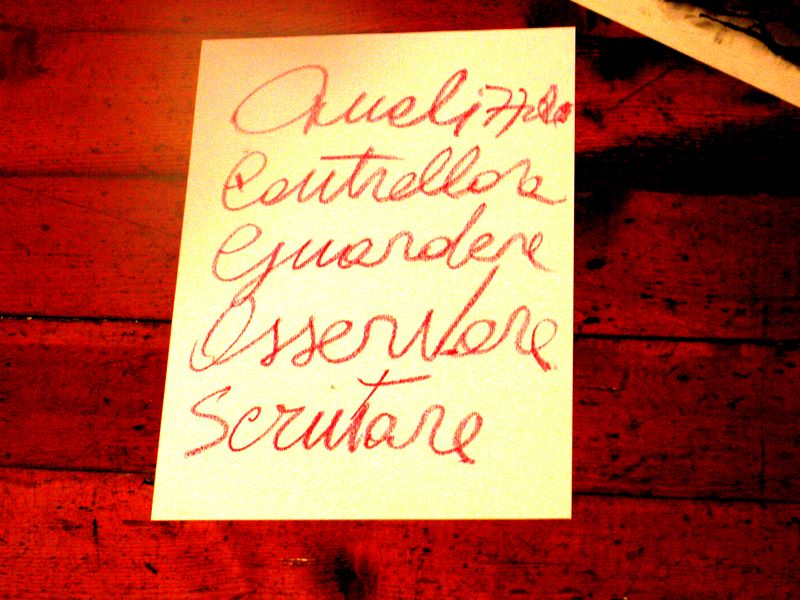 Analizzare
Controllare
Guardare
Osservare
Scrutare